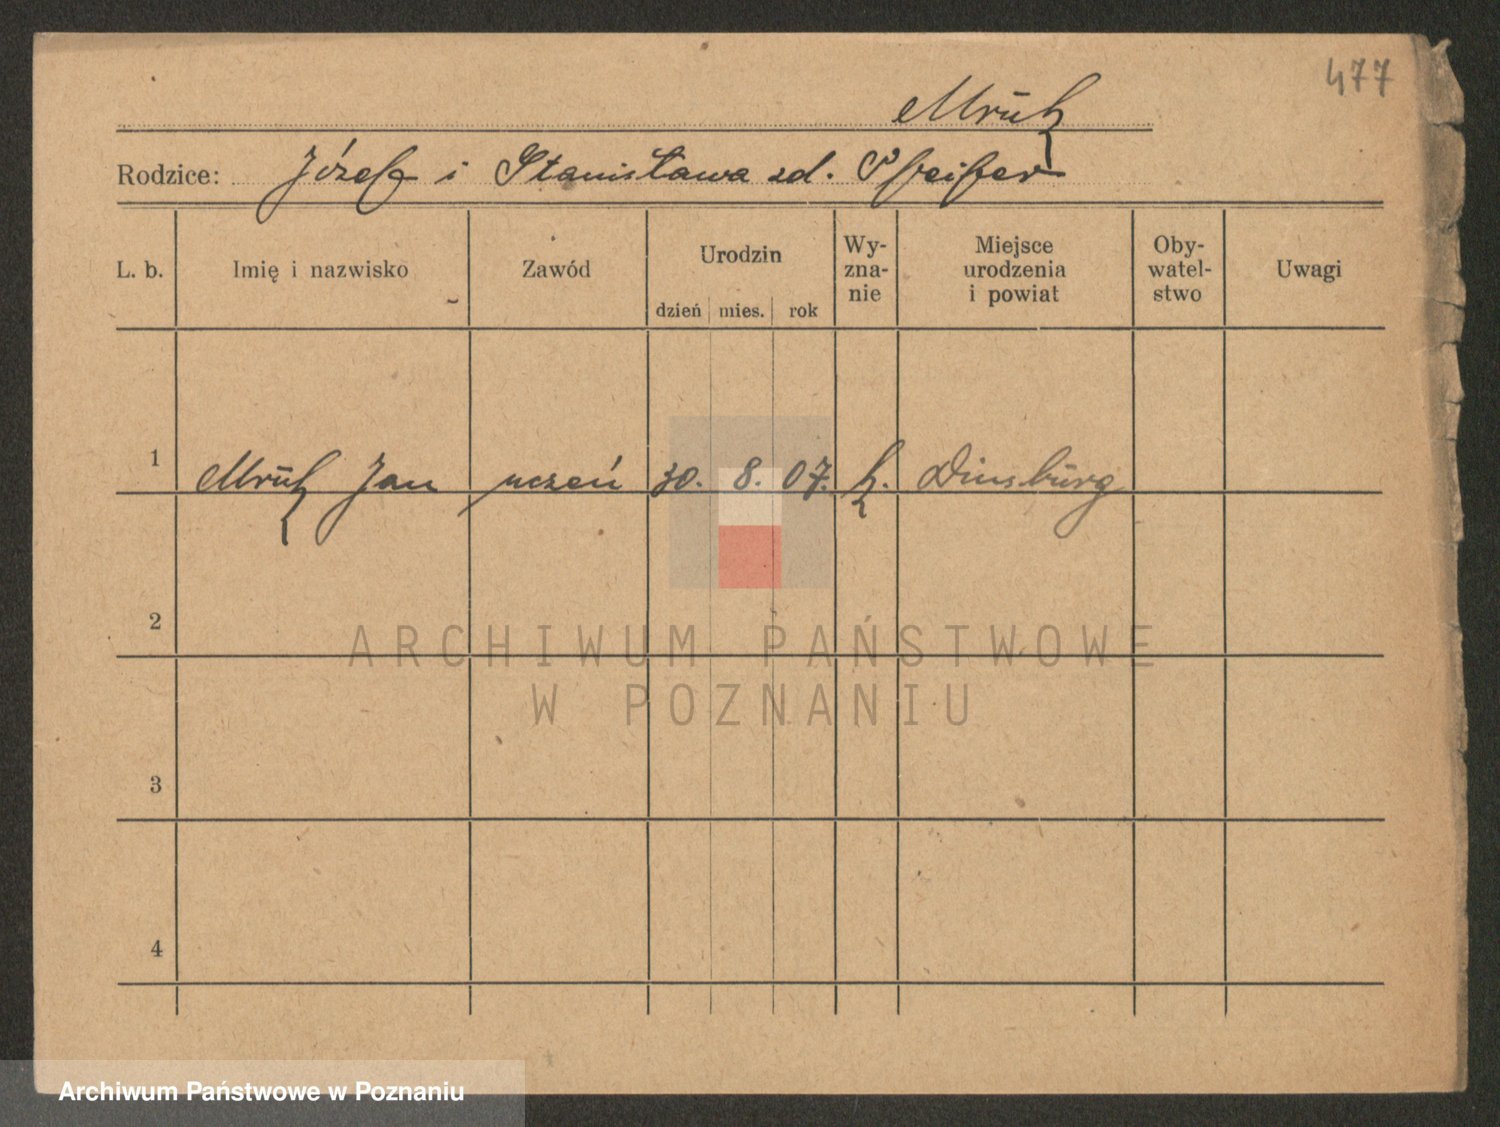 477
Mrük
Rodzice: Józef i Stanisława zd. Pfeifer
L. b.
Imię i nazwisko
Zawód
Urodzin
dzień mies. rok
Wy-
zna-
nie
Miejsce
urodzenia
i powiat
Oby-
watel-
stwo
Uwagi
1 Mrük Jan uczeń 30. 8. 07. k. Dinsbürg
2
ARCHIWUM PAŃSTWOWE
W POZNANIU
3
4
Archiwum Państwowe w Poznaniu